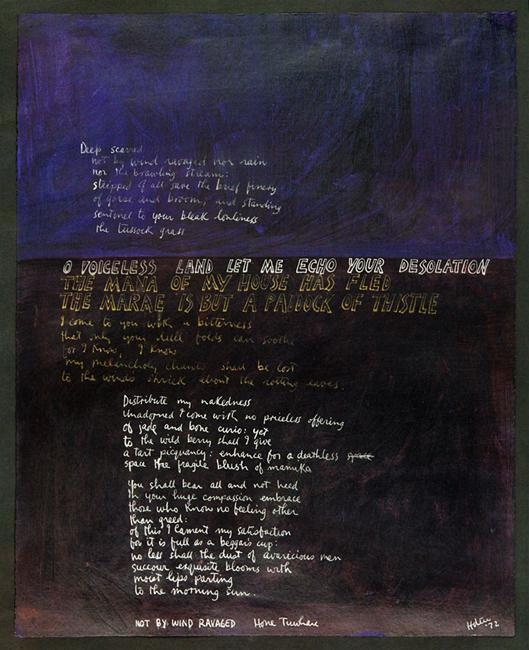 Deep scarred
not by wind ravaged nor rain
nor the brawling stream:
stripped of all save the brief finery
of gorse and broom; and standing
sentinel to your bleak loneliness
the tussock grass
O VOICELESS LAND LET ME ECHO YOUR DESOLATION
THE MANA OF MY HOUSE HAS FLED
THE MARAE IS BUT A PADDOCK OF THISTLE
I come to you with a bitterness
that only your dull folds can soothe
for I know, I know
my melancholy chants shall be lost
to the winds shriek about the rotting eaves.
Distribute my nakedness
Unadorned I come with no priceless offering
of jade and bone curio: yet
to the wild berry shall I give
a tart piquancy: enhance for a deathless
space the fragile blush of manuka
You shall bear all and not heed
In your huge compassion embrace
those who know no feeling other
than greed:
of this I lament my satisfaction
for it is full as a beggar's cup:
no less shall the dust of avaricious men
succour exquisite blooms with
moist lips parting
to the morning sun.
NOT BY WIND RAVAGED Hone Tuwhare
Hotere -72